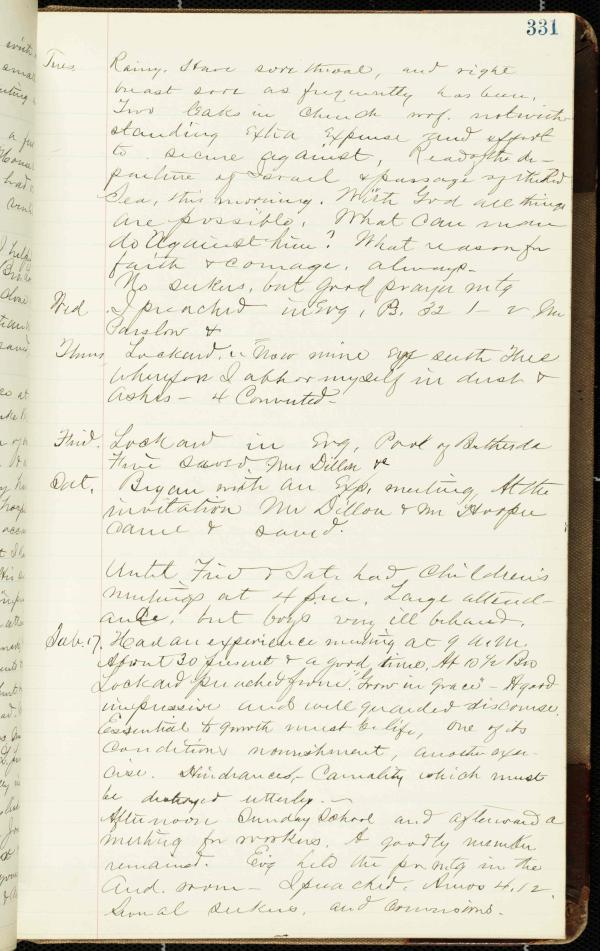 331
Tues. Rainy. Have sore throat, and right
breast sore as frequently has been.
Two leaks in Church roof. notwith-
standing Extra Expense and effort
to secure against. Read of the de-
parture of Israel & passage of the Red
Sea, this morning. With God all things
are possible. What can man
do against him? What reason for
faith & courage, always.
No seekers, but good prayer mtg
Wed. I preached in Evg, Ps. 32 1- v Mr
Parslow &
Thurs. Lockard. Now mine Eye seeth Thee
wherefore I abhor myself in dust &
ashes - 4 Converted.
Frid. Lockard in Evg, Pool of Bethesda
Five saved. Mrs Dillon &c
Sat. Began with an Exp. meeting At the
invitation Mr Dillon & Mr Hooper
came & saved.
Until Frid & Sat. had Children's
meetings at 4 p.m. Large attend-
ance, but boys very ill behaved.
17. Had an experience meeting at 9 a.m.
About 30 present & a good time. At 10 1/2 Bro
Lockard preached from "Grow in grace" - A good
impressive and well guarded discourse.
Essential to growth must be life, one of its
conditions nourishment, another exer-
cise. Hindrances, - Carnality which must
be destroyed utterly. -
Afternoon Sunday School and afterward a
meeting for workers. A goodly number
remained. Evg held the pr mtg in the
Aud. room - I preached. Amos 4.12.
Several seekers, and conversions.